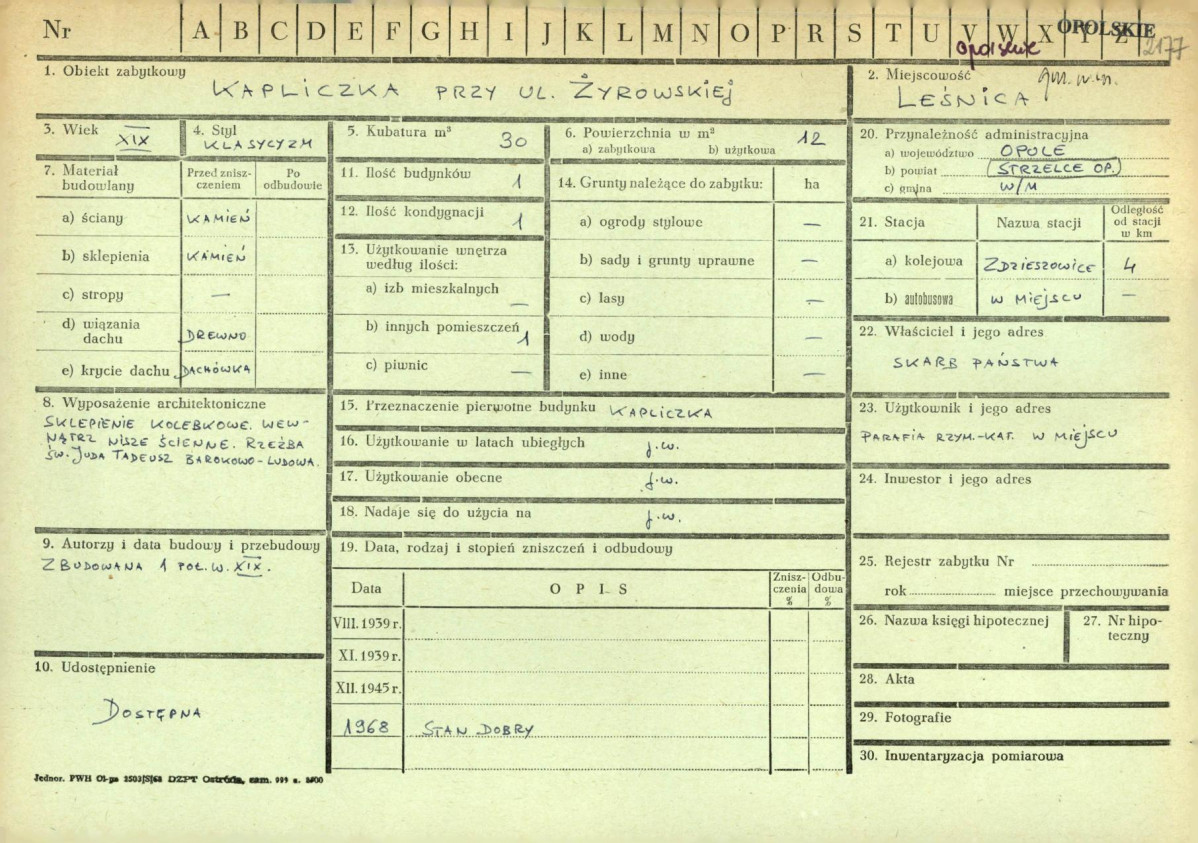 Nr A B C D E F G H I J K L M N O P R S T U V W X Y Z
OPOLSKIE
opolskie
2177
1. Obiekt zabytkowy
KAPLICZKA PRZY UL. ŻYROWSKIEJ
2. Miejscowość
LEŚNICA
3. Wiek
XIX
4. Styl
KLASYCYZM
5. Kubatura m³
30
6. Powierzchnia w m²
a) zabytkowa b) użytkowa
12
20. Przynależność administracyjna
a) województwo OPOLE
b) powiat STRZELCE OP.
c) gmina W/M
7. Materiał budowlany
Przed zniszczeniem
Po odbudowie
a) ściany KAMIEŃ
b) sklepienia KAMIEŃ
c) stropy —
d) wiązania dachu DREWNO
e) krycie dachu DACHÓWKA
11. Ilość budynków 1
12. Ilość kondygnacji 1
13. Użytkowanie wnętrza
według ilości:
a) izb mieszkalnych —
b) innych pomieszczeń 1
c) piwnic —
14. Grunty należące do zabytku: ha
a) ogrody stylowe —
b) sady i grunty uprawne —
c) lasy —
d) wody —
e) inne —
21. Stacja
Nazwa stacji
Odległość
od stacji
w km
a) kolejowa ZDZIESZOWICE 4
b) autobusowa W MIEJSCU —
22. Właściciel i jego adres
SKARB PAŃSTWA
8. Wyposażenie architektoniczne
SKLEPIENIE KOLEBKOWE. WEW-
NĄTRZ NISZE ŚCIENNE. RZEŹBA
ŚW. JUDA TADEUSZ BAROKOWO-LUDOWA.
15. Przeznaczenie pierwotne budynku KAPLICZKA
16. Użytkowanie w latach ubiegłych j.w.
17. Użytkowanie obecne j.w.
18. Nadaje się do użycia na j.w.
23. Użytkownik i jego adres
PARAFIA RZYM.-KAT. W MIEJSCU
24. Inwestor i jego adres
9. Autorzy i data budowy i przebudowy
ZBUDOWANA 1 POŁ. W. XIX.
19. Data, rodzaj i stopień zniszczeń i odbudowy
Data
OPIS
Zniszczenia %
Odbudowa %
VIII. 1939 r.
XI. 1939 r.
XII. 1945 r.
1968 STAN DOBRY
25. Rejestr zabytku Nr
rok miejsce przechowywania
26. Nazwa księgi hipotecznej
27. Nr hipo-
teczny
10. Udostępnienie
DOSTĘPNA
28. Akta
29. Fotografie
30. Inwentaryzacja pomiarowa
Jednor. PWH DZPT Ostróda, zam.